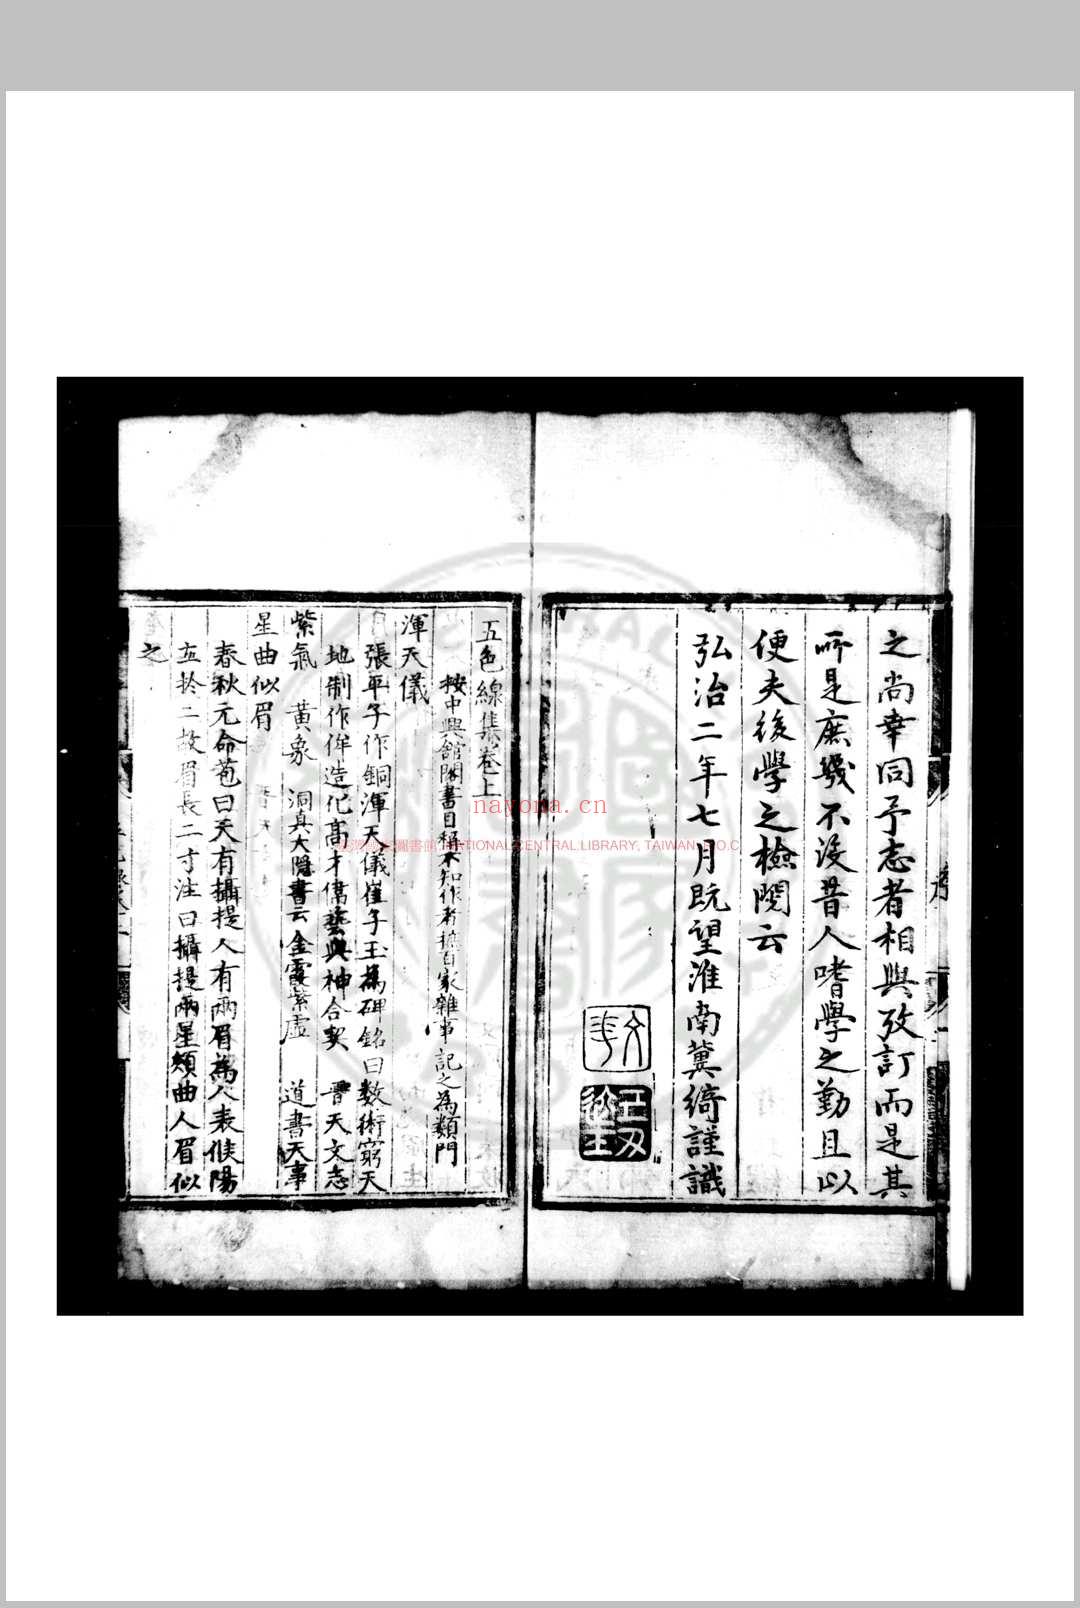 之尚幸同予志者相與攷訂而是其
所是庶幾不沒昔人嗜學之勤且以
便夫後學之檢閱云
弘治二年七月既望淮南冀綺謹識
五色線集卷上
按中興館閣書目稱不知作者摭百家雜事記之為類門
渾天儀
張平子作銅渾天儀崔子玉為碑銘曰數術窮天
地制作侔造化高才偉藝與神合契 晉天文志
紫氣 黃象 洞真大隱書云金霞紫虛 道書天事
星曲似眉
春秋元命苞曰天有攝提人有兩眉為人表候陽
立於二故眉長二寸注曰攝提兩星頻曲人眉似
之
nayona.cn
國家圖書館 NATIONAL CENTRAL LIBRARY, TAIWAN, R.O.C